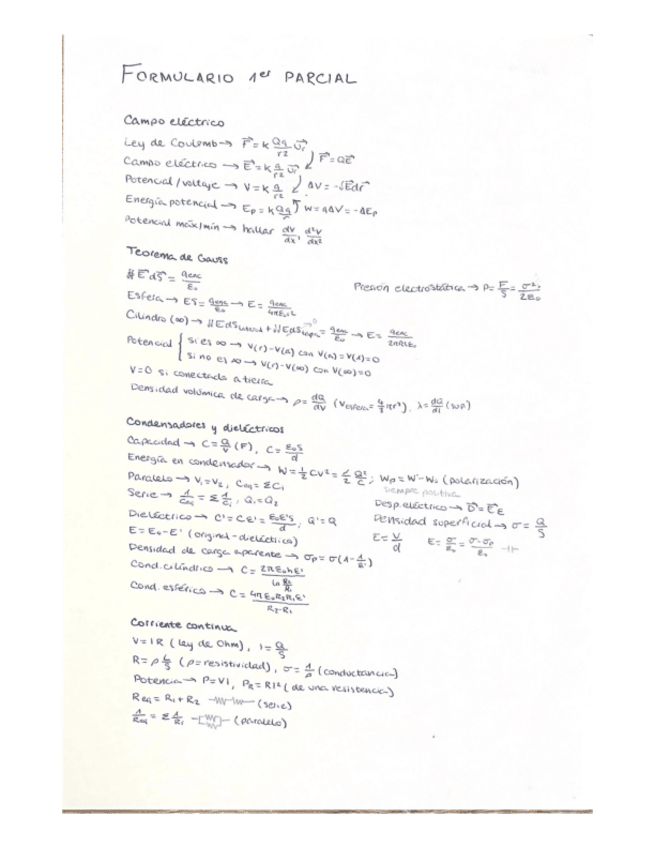 FORMULARIO 1er PARCIAL
Campo eléctrico
Ley de Coulomb → F⃗ = K Qq/r2 u⃗r
F⃗ = QE⃗
Campo eléctrico → E⃗ = K q/r2 u⃗r
Potencial/voltaje → V = K q/r2
ΔV = -∫E⃗dr⃗
Energía potencial → Ep = K Qq/r
W = qΔV = -ΔEp
Potencial máx/mín → hallar dV/dx, d²V/dx²
Teorema de Gauss
∯ E⃗ dS⃗ = qenc/ε₀
Presión electrostática → P = F/S = σ²/2ε₀
Esfera → ES = qenc/ε₀ → E = qenc/4πε₀r2
Cilindro (∞) → = qenc/ε₀ → E =
Potencial { si es ∞ → V(r)-V(a) con V(a)=V(1)=0
si no es ∞ → V(r)-V(∞) con V(∞)=0
V=0 si conectada a tierra
Densidad volúmica de carga → ρ = dQ/dV (Vesfera = 4/3 πr³), λ = dQ/dl (sup)
Condensadores y dieléctricos
Capacidad → C = Q/V (F), C = ε₀S/d
Energía en condensador → W = 1/2 CV² = 1/2 Q²/C ; Wp = W'-W₀ (polarización)
siempre positiva
Paralelo → V₁=V₂, Ceq = ΣCi
Serie → 1/Ceq = Σ 1/Ci, Q₁=Q₂
Desp. eléctrico → D⃗ = εE⃗
Dieléctrico → C' = Cε' = ε₀ε'S/d ; Q'=Q
Densidad superficial → σ = Q/S
E = E₀-E' (original-dieléctrica)
E = V/d
E = σ/ε₀ = σ-σp/ε₀
Densidad de carga aparente → σp = σ(1-1/ε')
Cond. cilíndrico → C = 2πε₀hε'/ln R2/R1
Cond. esférico → C = 4πε₀R2R1ε'/R2-R1
Corriente continua
V = IR (ley de Ohm), I = Q/S
R = ρ L/S (ρ = resistividad), σ = 1/ρ (conductancia)
Potencia → P = VI, PR = RI² (de una resistencia)
Req = R1 + R2 (serie)
1/Req = Σ 1/Ri (paralelo)